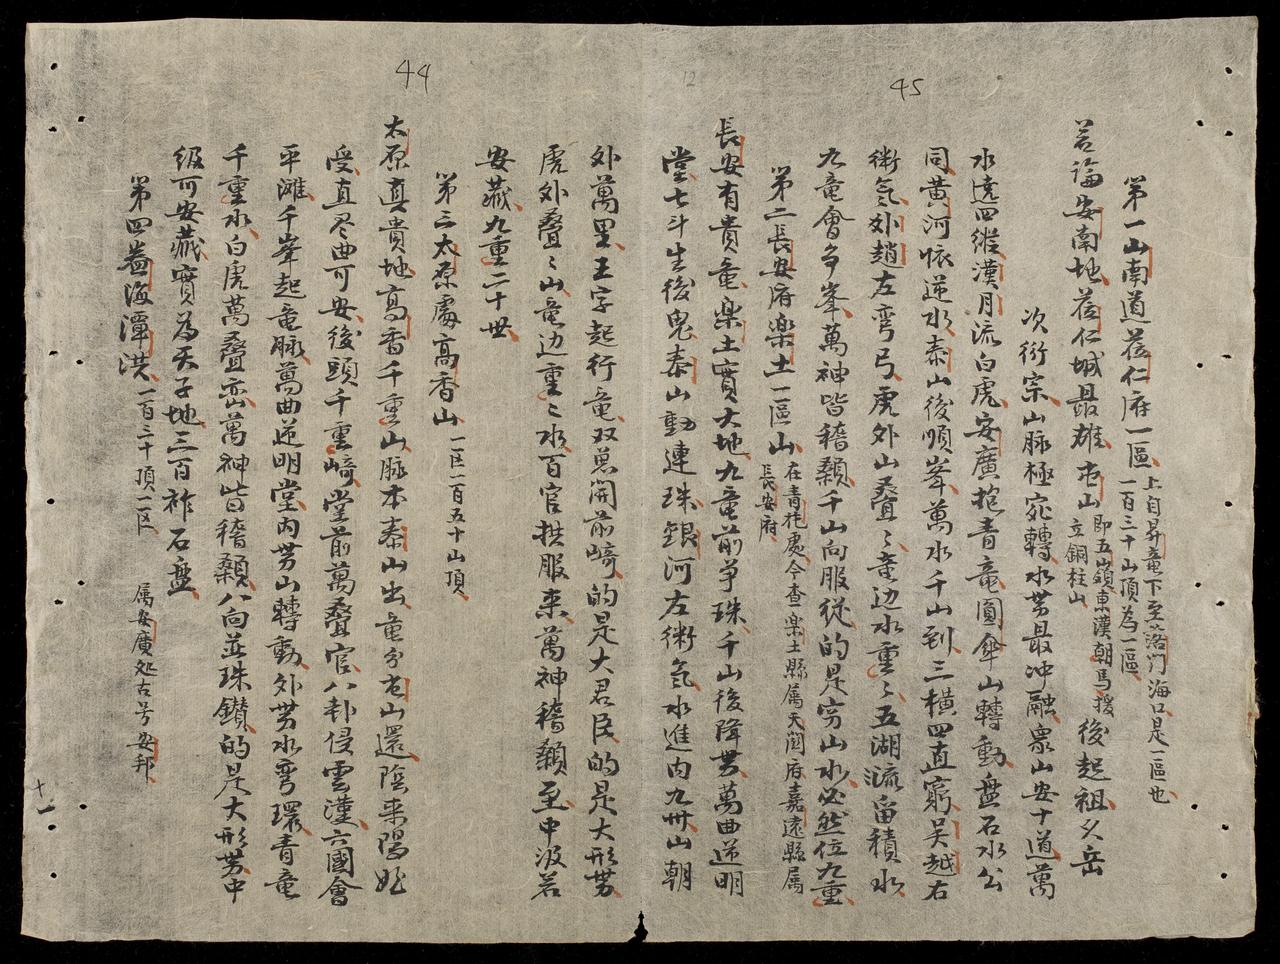 45
第一山南道蒞仁府一區上自昇竜下至蓓门海口是一區也一百三十山頂為一區
若論安南地蒞仁城最雄屯山即五嶺東漢朝馬援立銅柱山後起祖父岳
次衍宗山脉極宛轉水势最冲融衆山安十道萬
水遶四縱漢月流白虎安廣抱青竜圓傘山轉動盤石水公
同黄河怅逆水泰山後順峯萬水千山到三横四直窮吴越右
衛氣外趙左弯弓虎外山叠〻竜边水重〻五湖流留積水
九竜會多峯萬神皆稽顙千山向服從的是穷山水必然位九重
第二長安府楽土一區山在青扥處今查楽土縣属天關府嘉遠縣属長安府
長安有貴竜楽土實大地九竜前爭珠千山後降势萬曲逆明
堂七斗生後鬼泰山動連珠銀河左衛氣水進内九州山朝
44
外萬里王字起行竜双萬開前﨑的是大君臣的是大形势
虎外叠〻山竜边重〻水百官拱服来萬神稽顙至中汲若
安藏九重二十世
第三太原處高香山一区一百五十山頂
太原真貴地高香千重山脉本泰山出竜分屯山還陰来陽始
受直尽曲可安後頭千重﨑堂前萬叠官八卦侵雲漢六國會
平灘千峯起竜脉萬曲逆明堂内势山轉動外势水弯環青竜
千重水白虎萬叠峦萬神皆稽顙八向並珠鑚的是大形势中
级可安藏實為天子地三百祚石盤
第四益海潭洪一百三十頂一区 属安廣处古号安邦
十一